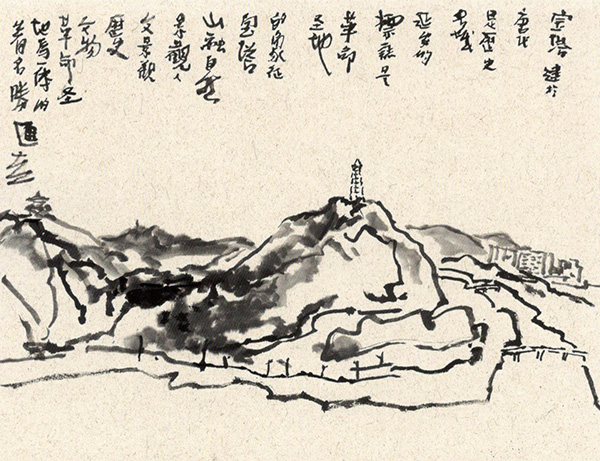 宝塔 建於
唐代
是歷史
名城
延安的
標誌是
革命
圣地
的象征
宝塔
山融自然
景觀人
文景觀
歷史
文物
革命圣
地為一体的
著名勝